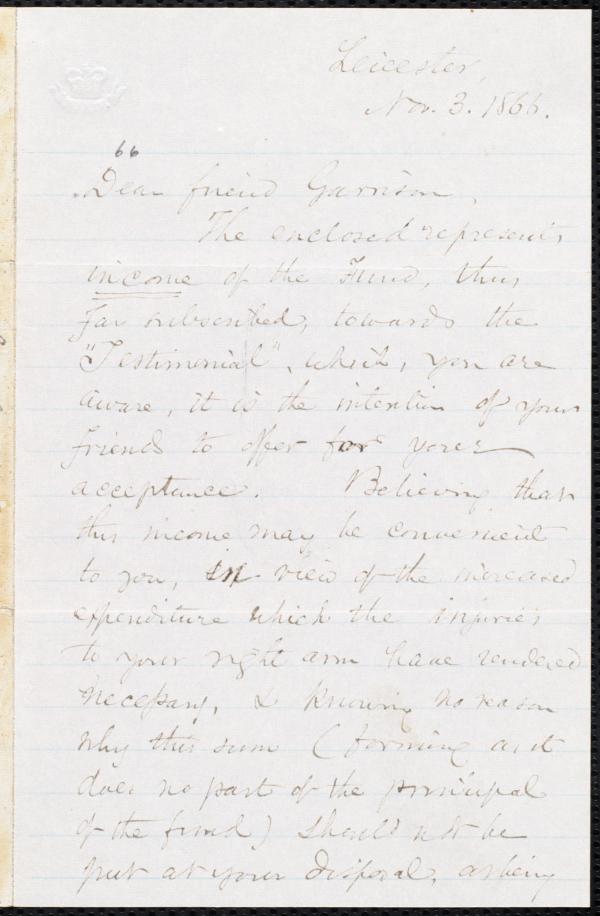 Leicester,
Nov. 3. 1866.
66
Dear friend Garrison,
The enclosed represents
income of the Fund, thus
far subscribed, towards the
"Testimonial", which, you are
aware, it is the intention of your
friends to offer for your
acceptance. Believing that
this income may be convenient
to you, in view of the increased
expenditure which the injuries
to your right arm have rendered
necessary, & knowing no reason
why this sum (forming as it
does no part of the principal
of the fund) should not be
put at your disposal, as being